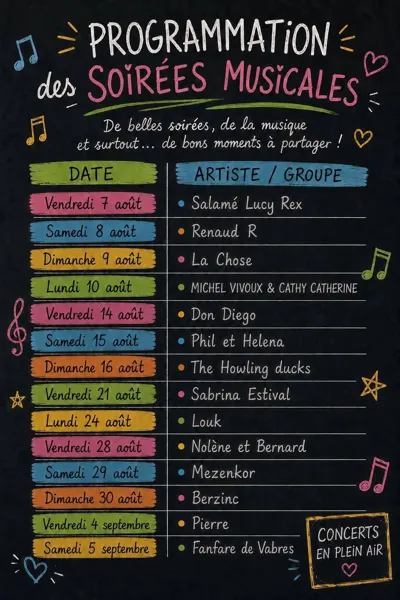 PROGRAMMATION
des SOIRÉES MUSICALES
De belles soirées, de la musique
et surtout... de bons moments à partager !
DATE ARTISTE / GROUPE
Vendredi 7 août • Salamé Lucy Rex
Samedi 8 août • Renaud R
Dimanche 9 août • La Chose
Lundi 10 août • MICHEL VIVOUX & CATHY CATHERINE
Vendredi 14 août • Don Diego
Samedi 15 août • Phil et Helena
Dimanche 16 août • The Howling ducks
Vendredi 21 août • Sabrina Estival
Lundi 24 août • Louk
Vendredi 28 août • Nolène et Bernard
Samedi 29 août • Mezenkor
Dimanche 30 août • Berzinc
Vendredi 4 septembre • Pierre
Samedi 5 septembre • Fanfare de Vabres
CONCERTS
EN PLEIN AIR